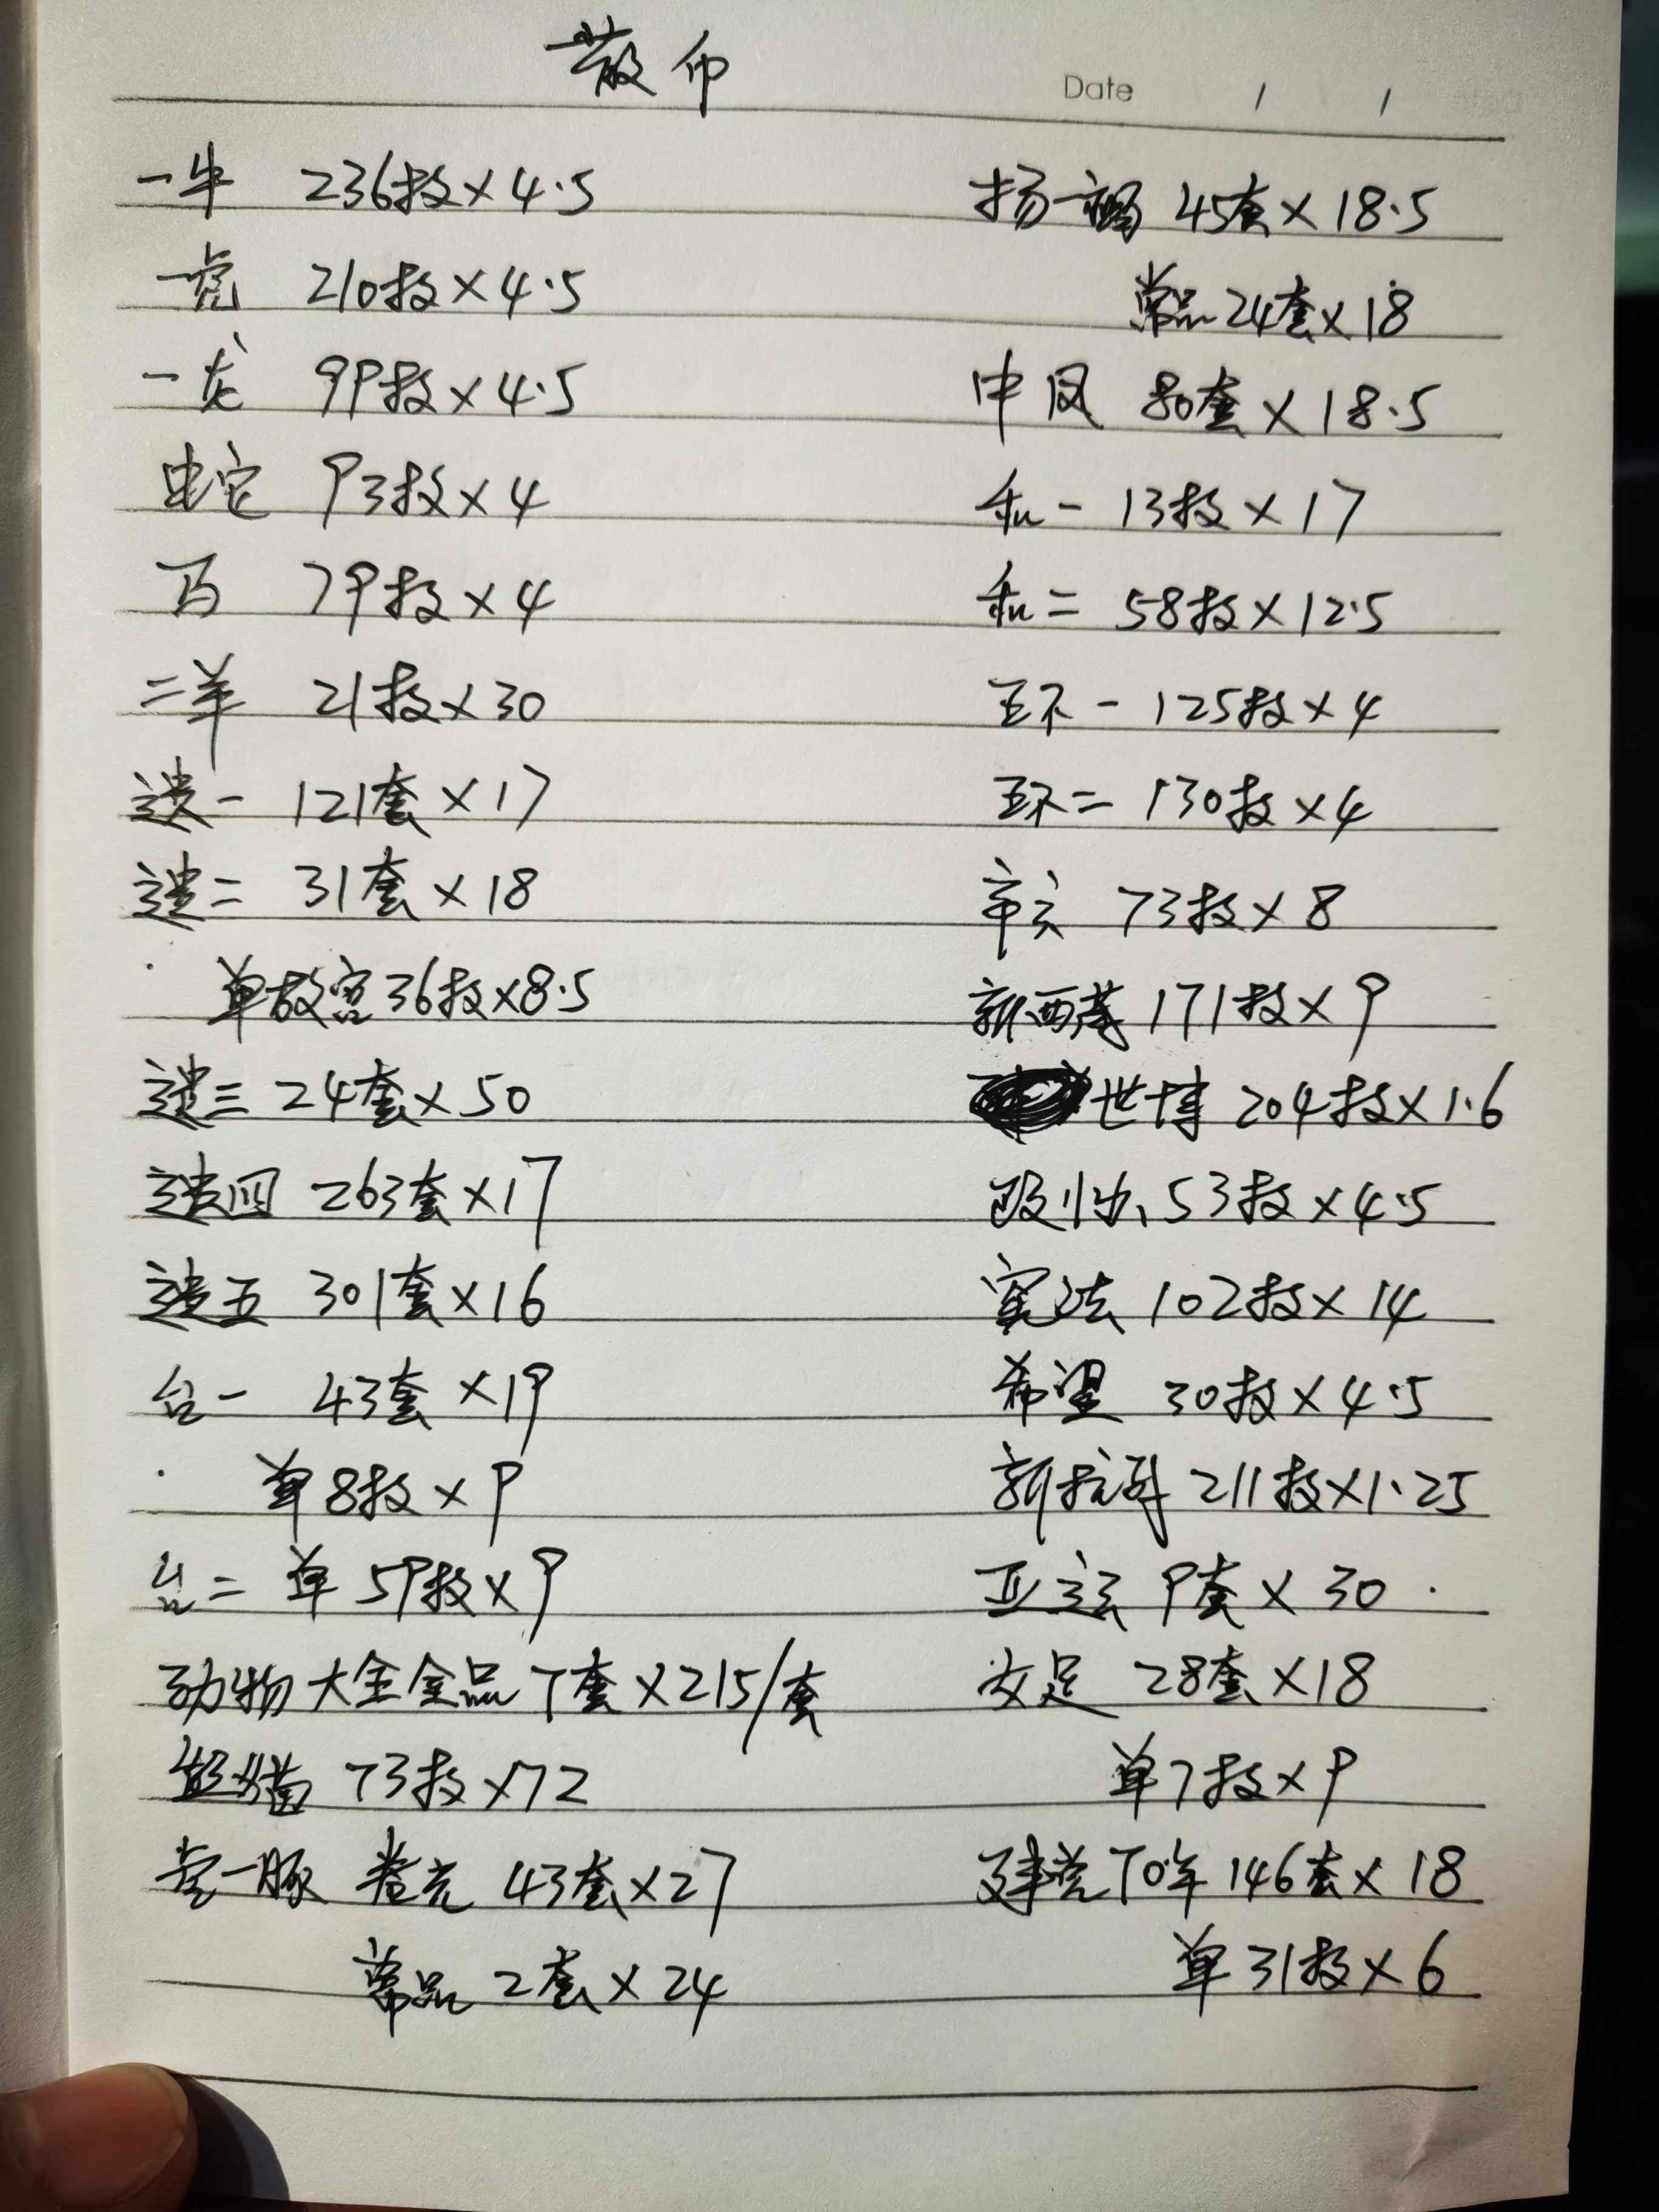 散币
Date / /
一牛 236枚×4.5
一虎 210枚×4.5
一龙 99枚×4.5
蛇 93枚×4
马 79枚×4
二羊 21枚×30
遗一 121套×17
遗二 31套×18
单故宫36枚×8.5
遗三 24套×50
遗四 263套×17
遗五 301套×16
台一 43套×19
单8枚×9
台二 单 59枚×9
动物大全全品 7套×215/套
熊猫 73枚×72
一豚 卷光 43套×27
常品 2套×24
扬一 45套×18.5
常品24套×18
中凤 80套×18.5
和一 13枚×17
和二 58枚×12.5
五环一 125枚×4
五环二 130枚×4
辛亥 73枚×8
新西藏 171枚×9
世博 204枚×1.6
政协 53枚×4.5
宪法 102枚×14
希望 30枚×4.5
新抗战 211枚×1.25
亚运 9套×30
女足 28套×18
单7枚×9
建党70年 146套×18
单31枚×6